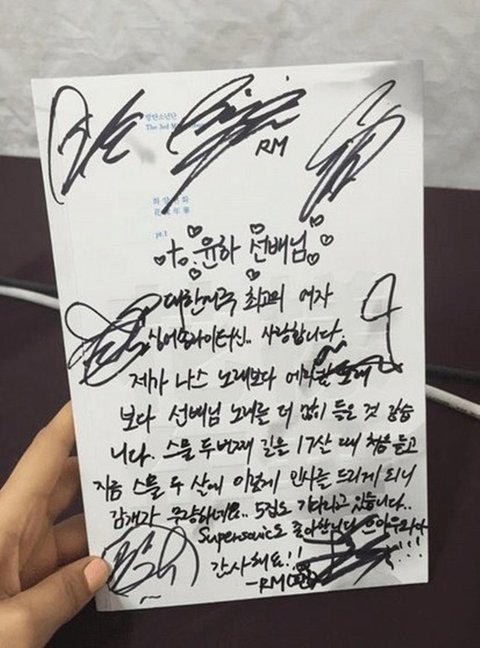 방탄소년단
The 3rd M
RM
화양연화
花樣年華
pt.1
윤하 선배님
대한민국 최고의 여자
싱어송라이터신.. 사랑합니다.
제가 나스 노래보다 에미넴 노래
보다 선배님 노래를 더 많이 들은 것 같습
니다. 스물 두번째 길을 17살 때 처음 듣고
지금 스물 두 살에 이렇게 인사를 드리게 되니
감개가 무량하네요.. 5집도 기다리고 있습니다..
Supersonic도 좋아합니다 으아우와아
감사해요!! !!!
-RM